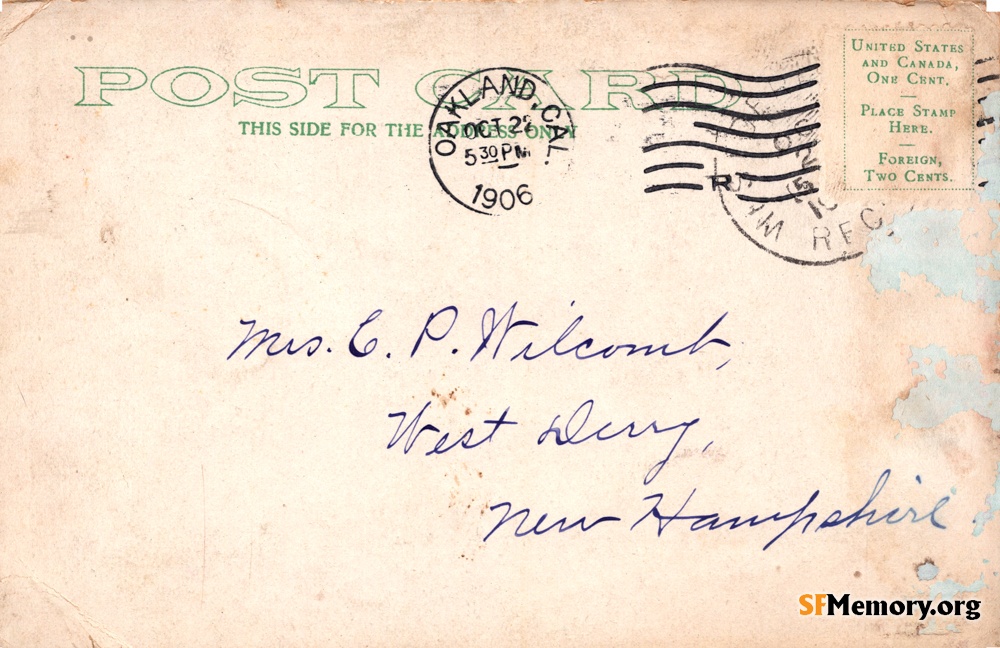 POST CARD
THIS SIDE FOR THE ADDRESS ONLY
OAKLAND, CAL.
OCT 22
5 30 PM
1906
R
REC.
UNITED STATES
AND CANADA,
ONE CENT.
PLACE STAMP
HERE.
FOREIGN,
TWO CENTS.
Mrs. C. P. Wilcomb,
West Derry,
New Hampshire
SFMemory.org